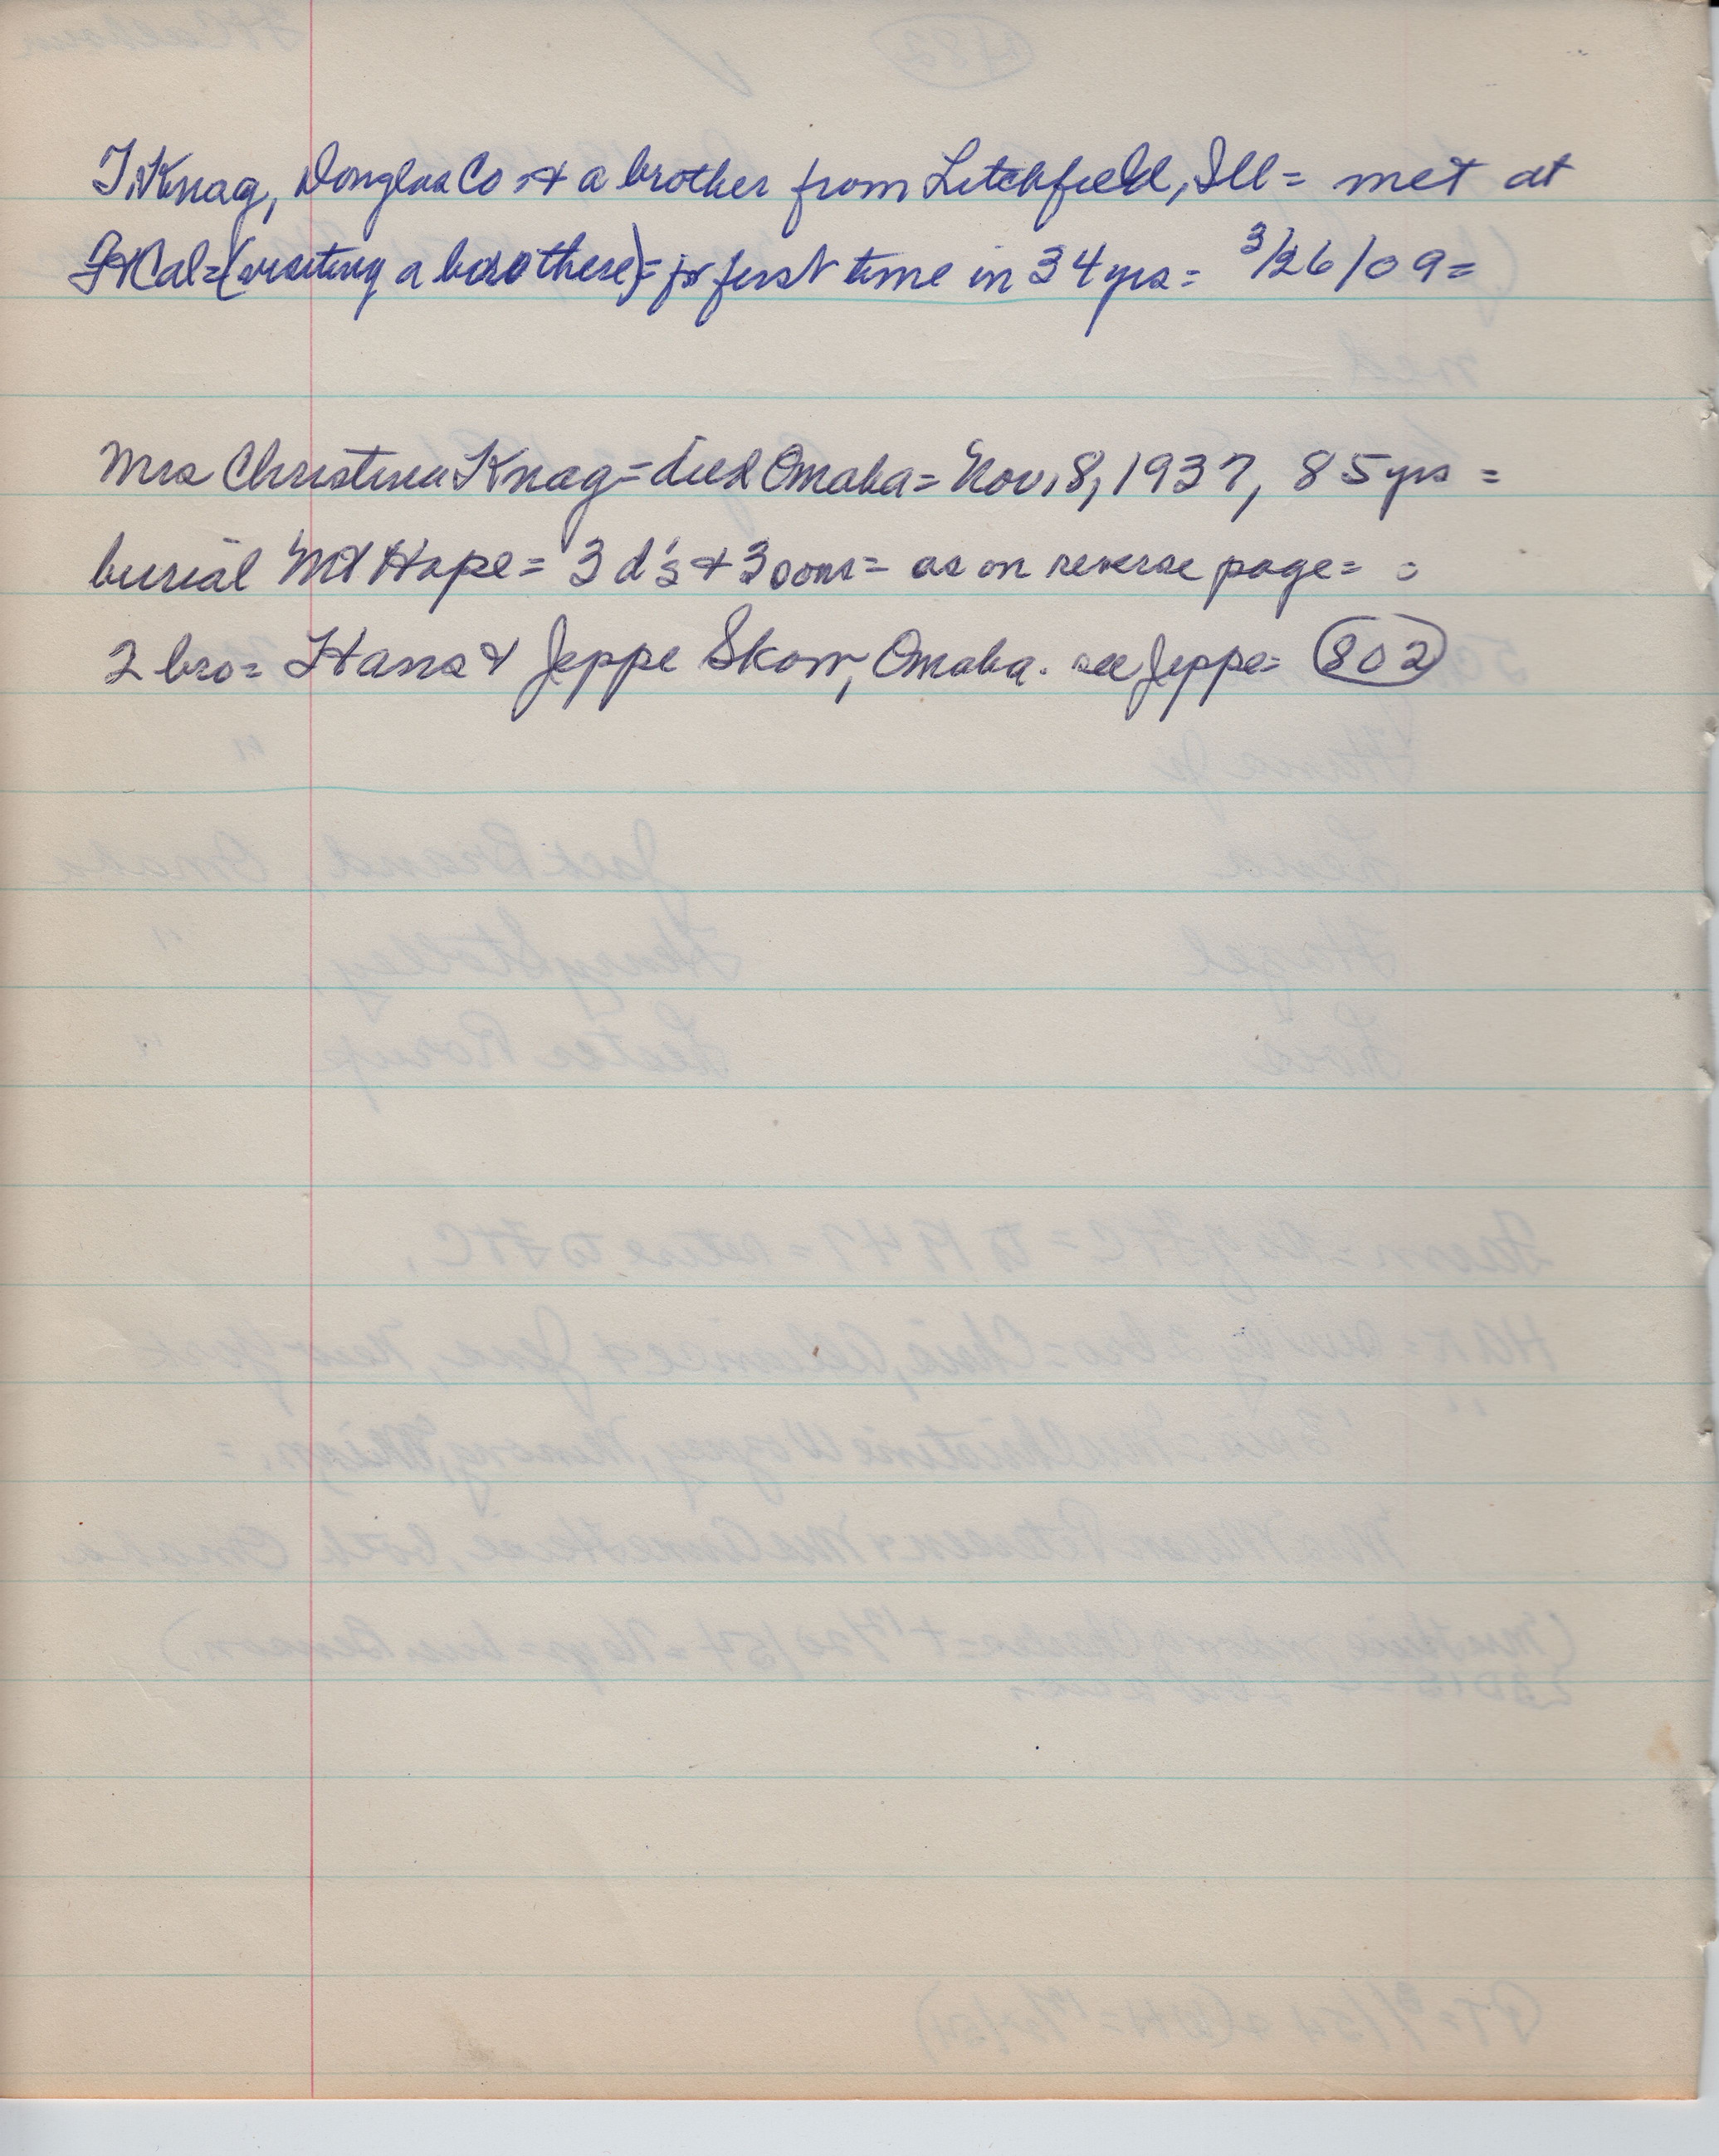 T. Knag, Douglas Co. & a brother from Litchfield, Ill = met at
Ft Cal = (visiting a bro there) = for first time in 34 yrs = 3/26/09 =
Mrs Christina Knag = died Omaha = Nov. 8, 1937, 85 yrs =
burial Mt Hope = 3 d's + 3 sons = as on reverse page =
2 bro = Hans & Jeppe Skow, Omaha. see Jeppe = 802